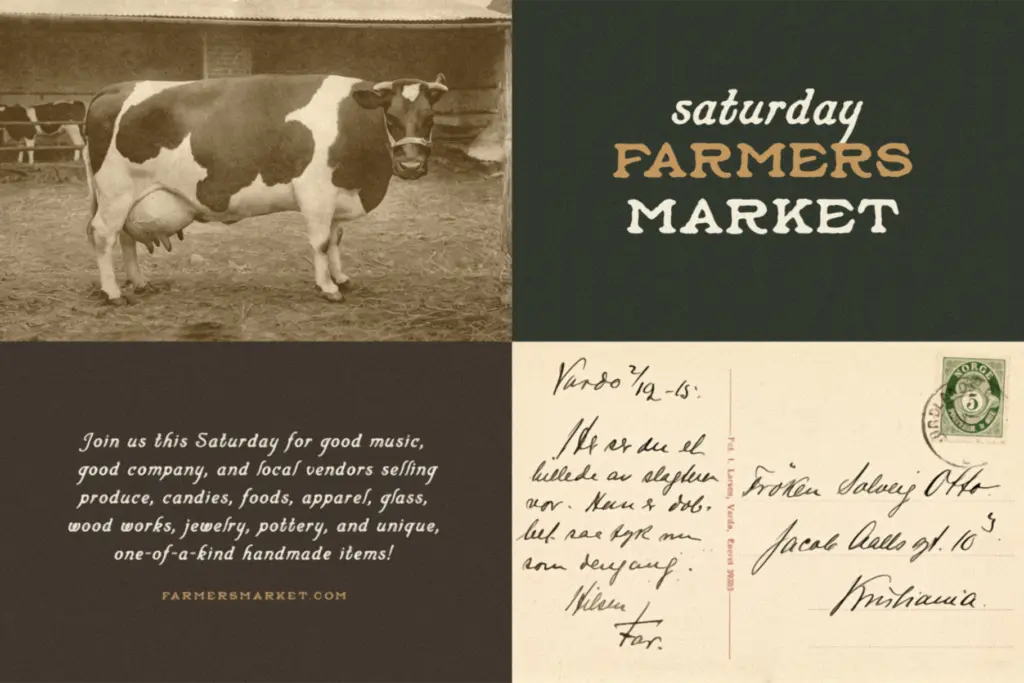 saturday
FARMERS
MARKET
Join us this Saturday for good music,
good company, and local vendors selling
produce, candies, foods, apparel, glass,
wood works, jewelry, pottery, and unique,
one-of-a-kind handmade items!
FARMERSMARKET.COM
Vardo 2/12-15.
Her ser du et
billede av slagteren
vor. Han er dob-
belt saa tyk nu
som dengang.
Hilsen
Far.
Fot. I. Larsen, Vardø, Eneret
NORGE
5
Frøken Solveig Otto.
Jacob Aalls gt. 10
Kristiania.